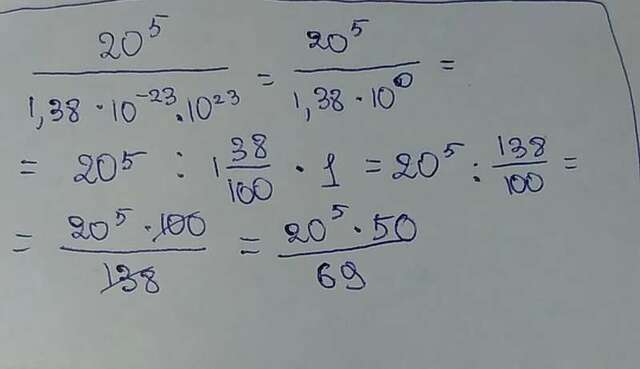 20⁵ / (1,38 · 10⁻²³ · 10²³) = 20⁵ / (1,38 · 10⁰) =
= 20⁵ : 1 38/100 · 1 = 20⁵ : 138/100 =
= (20⁵ · 100) / 138 = (20⁵ · 50) / 69